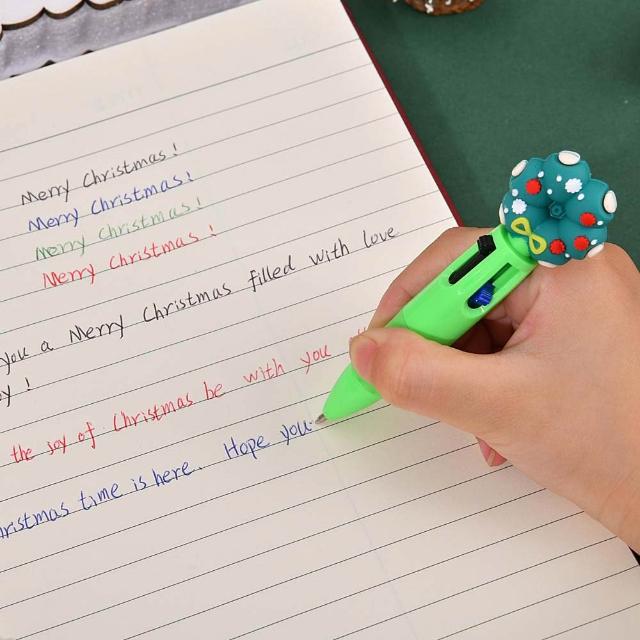 Merry Christmas!
Merry Christmas!
Merry Christmas!
Merry Christmas!
you a Merry Christmas filled with love
!
the joy of Christmas be with you
time is here. Hope you